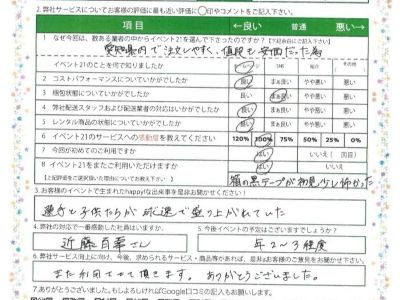 2.弊社サービスについてお客様の評価に最も近い評価に○印やコメントをご記入下さい。
項目 ←良い 普通 悪い→
1 なぜ今回は、数ある業者の中からイベント21を選んで下さったのですか？（下記余白にご記入下さい）
愛知県内で注文しやすく、値段も安価だった為
イベント21のことを何で知りましたか
2 コストパフォーマンスについていかがでしたか 良い まぁ良い やや悪い 悪い
3 梱包状態についていかがでしたか 良い まぁ良い やや悪い 悪い
4 弊社配送スタッフおよび配送業者の対応はいかがでしたか 良い まぁ良い やや悪い 悪い
5 レンタル商品の状態についていかがでしたか 良い まぁ良い やや悪い 悪い
6 イベント21のサービスへの感動度を教えてください 120% 100% 75% 50% 25% 0%
7 今回が初めてのご利用ですか はい いいえ（ 回目）
8 イベント21をまたご利用いただけますか はい いいえ
【上記評価をご選択頂いた理由についてお教え下さい】
箱の黒テープが初見少し怖かった
3.お客様のイベントで生まれたhappyな出来事を是非お聞かせください！
選手と子供たちが 球速で盛り上がれていた
4.弊社の対応で一番感動した社員はいますか？
近藤百華さん
5.今後イベントの予定はございますでしょうか？
年2〜3程度
6.弊社サービス向上に向け、今後、求められるサービス・商品等があれば、是非お客様のご意見をお聞かせ下さい。
また利用させて頂きます。ありがとうございました。
7.ありがとうございました。もしよろしければGoogle口コミの記入もお願いします。